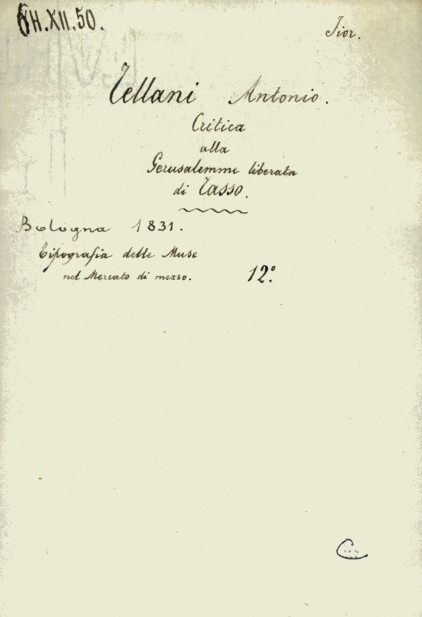 6H.XII.50.
Fior.
Tellani Antonio.
Critica
alla
Gerusalemme liberata
di Tasso.
Bologna 1831.
Tipografia delle Muse
nel Mercato di mezzo. 12°.